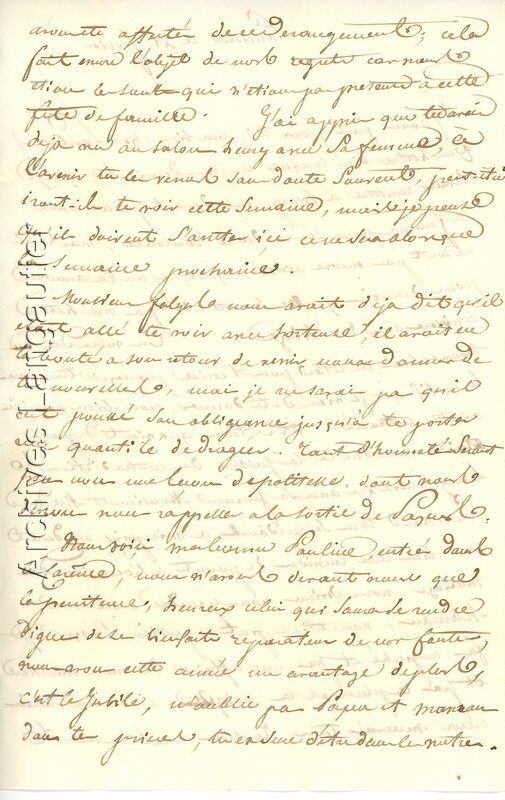 affecté de ce derangement, cela
fait encore l'objet de nos regrets car nous
etion les seuls qui n'etion pas presents a cette
fête de famille. J'ai appris que tu avais
deja vu au salon henry avec sa femme, a
l'avenir tu les verras sans doute souvent, peut-etre
iront-ils te voir cette semaine, mais je pense
qu'ils doivent s'arreter ici ce ne sera alors que
semaine prochaine.
Monsieur nous avait deja dit qu'il
etait allé te voir avec hortense, il avait eu
la bonté a son retour de venir nous donner de
nouvelles, mais je ne savais pas qu'il
eut poussé son obligeance jusqu'à te porter
quantité de dragées. Tant d'honnêteté
pour nous une leçon de politesse, dont nous
nous rappeller a la sortie de
Nous voici ma bonne Pauline, entrés dans le
Carême, nous n'avons devant nous que
la penitence, heureux celui qui saura se rendre
Digne de ce bienfait reparateur de nos fautes,
nous avons cette année un avantage de plus,
c'est le Jubilé, n'oublie pas Papa et maman
dans tes prieres, tu en seras dans les notres.
Archives Langaulier